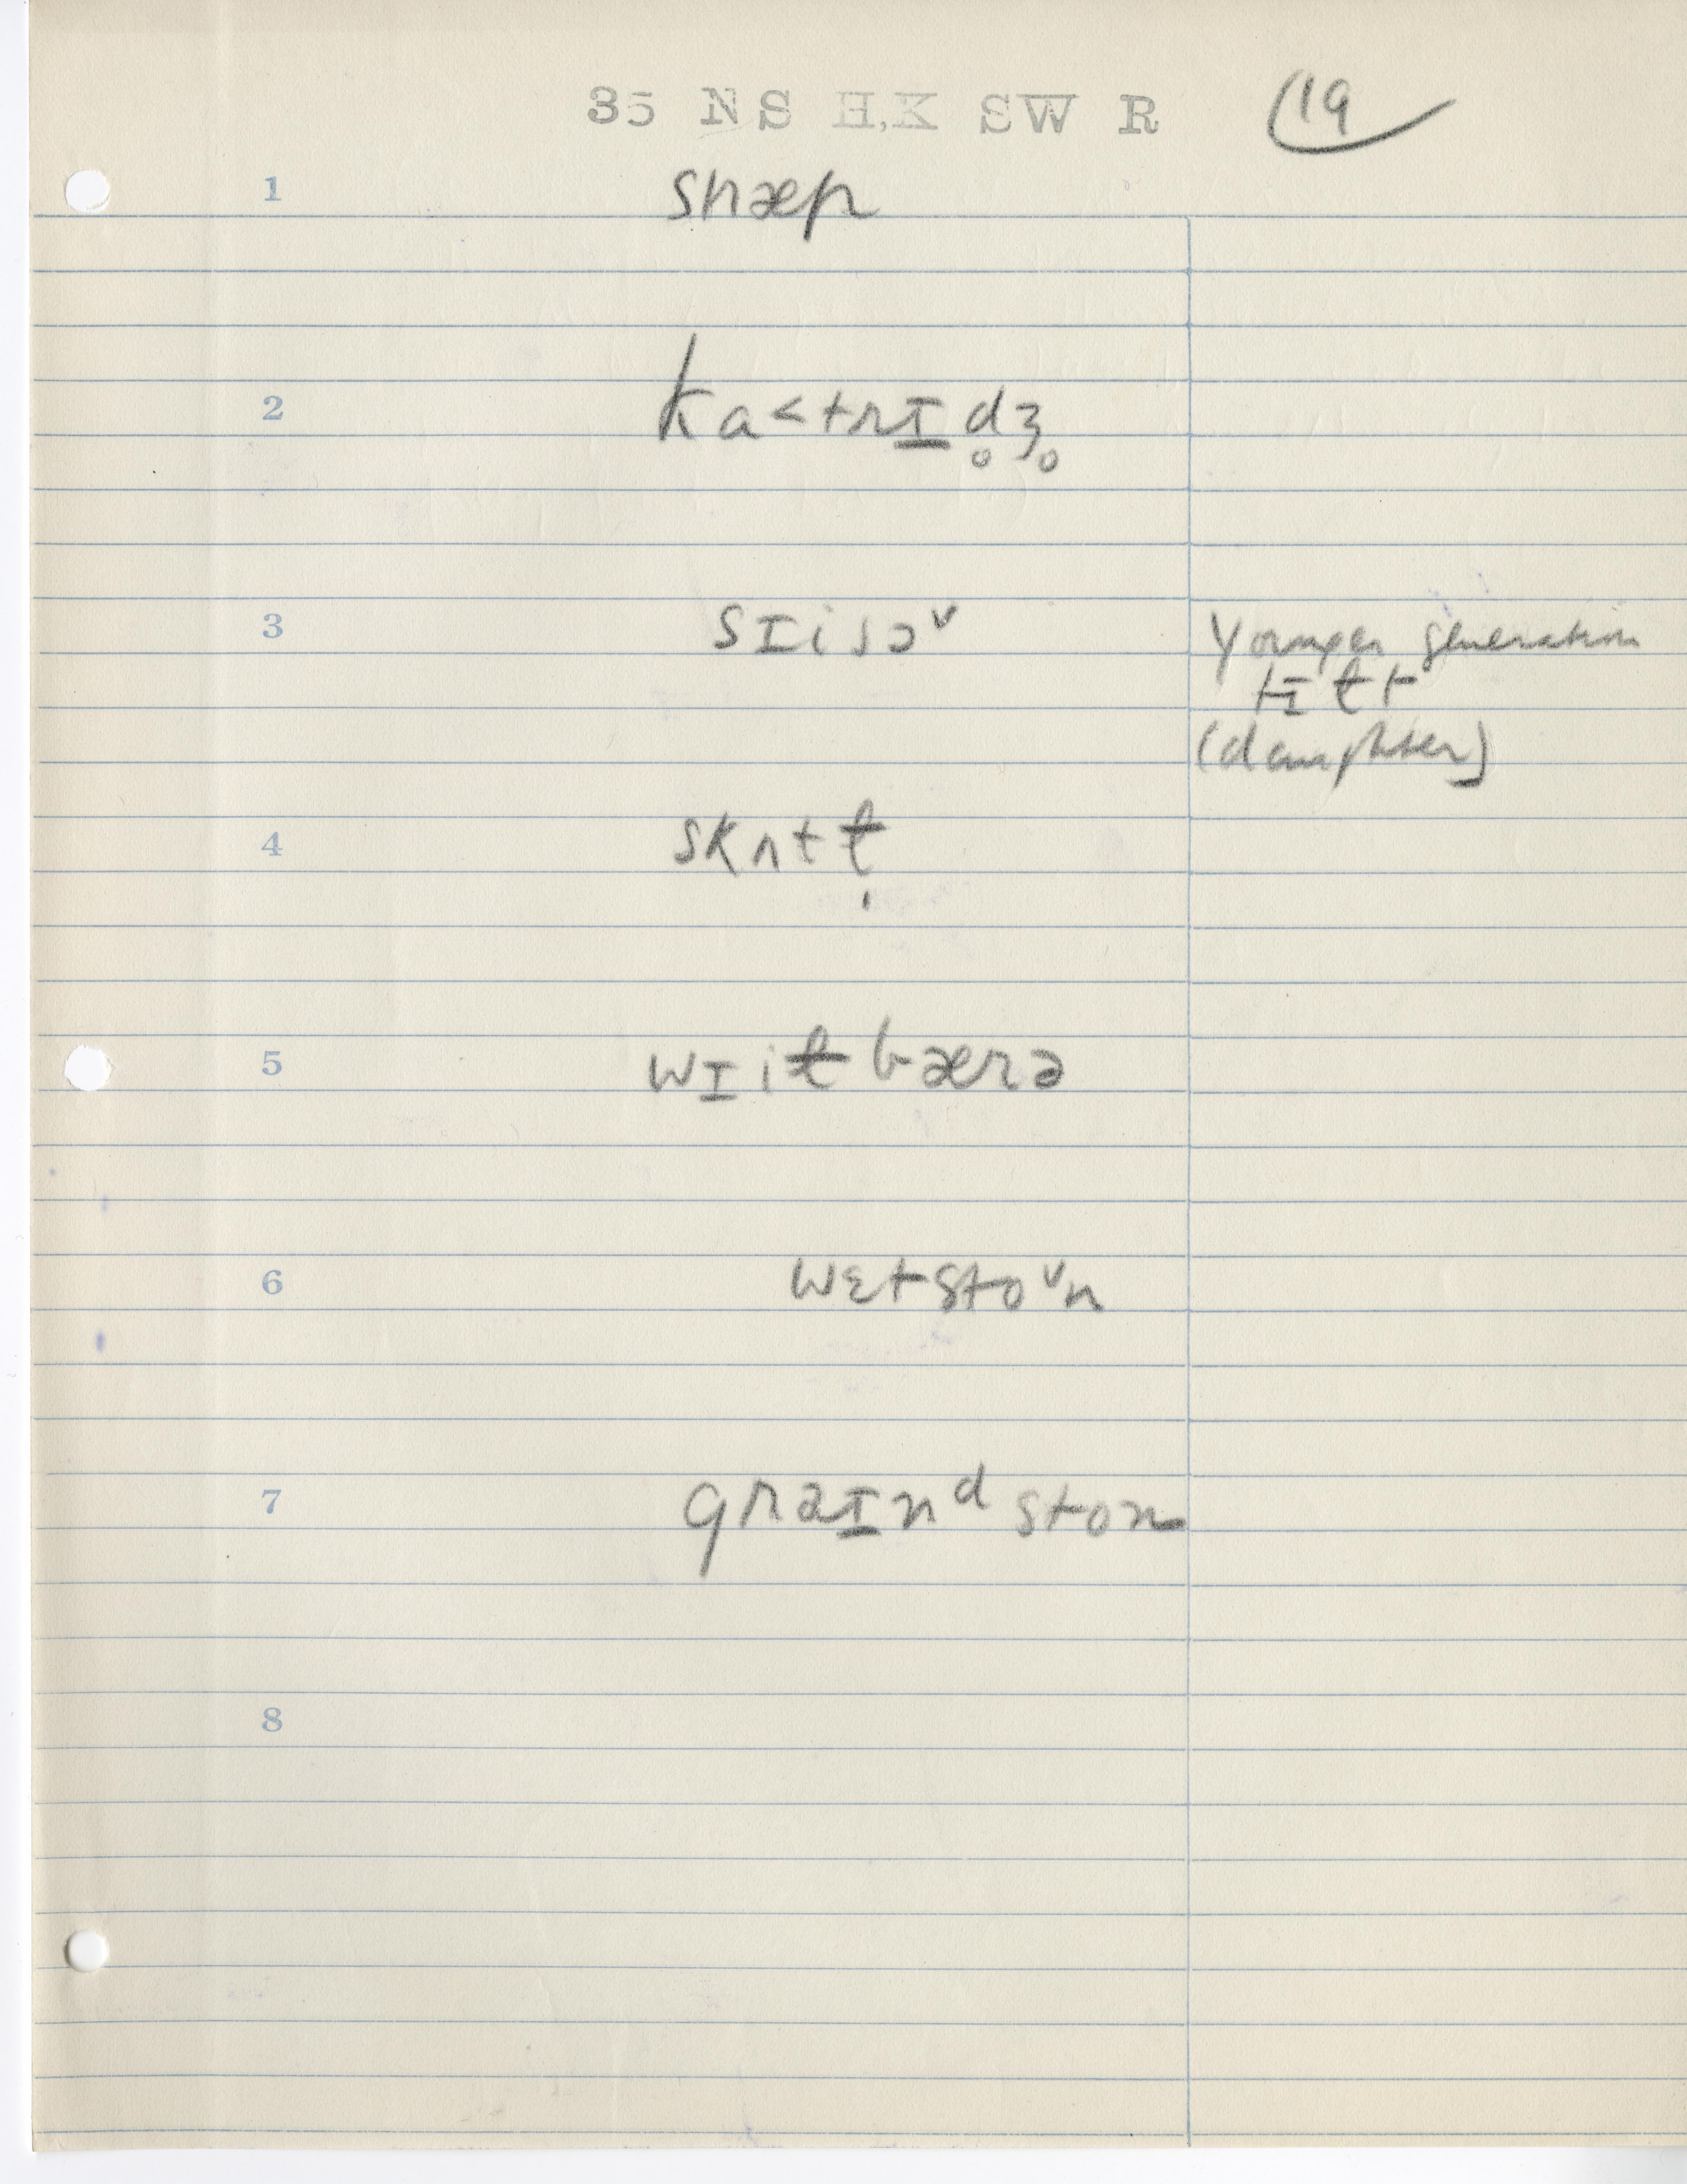 35 N S H,K SW R 19
1 snæp
2 ka˂trɪd̥ʒ̊
3 sɪisɔˇ Younger generation
tɪɫt
(daughter)
4 skʌtɫ̩
5 wɪiɫbærə
6 wɛtstoˇn
7 graɪnᵈston
8